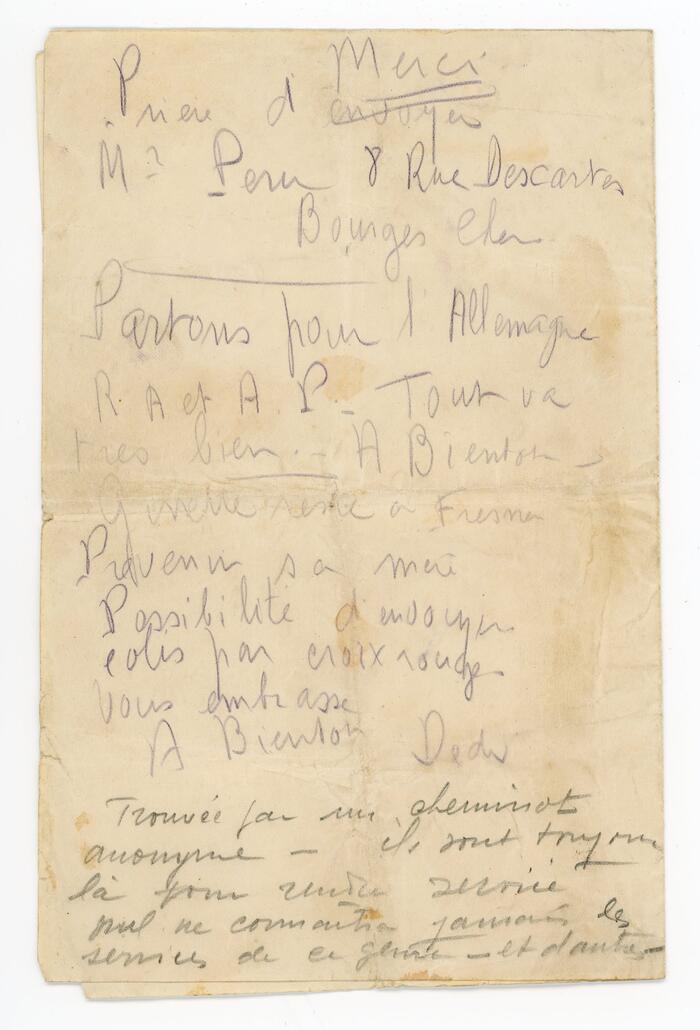 Merci
Prière d'envoyer
Mr Perin 8 Rue Descartes
Bourges Cher
Partons pour l'Allemagne
R A et A P - Tout va
très bien.- A Bientôt -
reste à Fresnes
Prévenir sa mère
Possibilité d'envoyer
colis par croix rouge
Vous embrasse
A Bientôt Dédé
Trouvée par un cheminot
anonyme - ils sont toujours
là pour rendre service
nul ne connaîtra jamais les
services de ce genre - et d'autres -